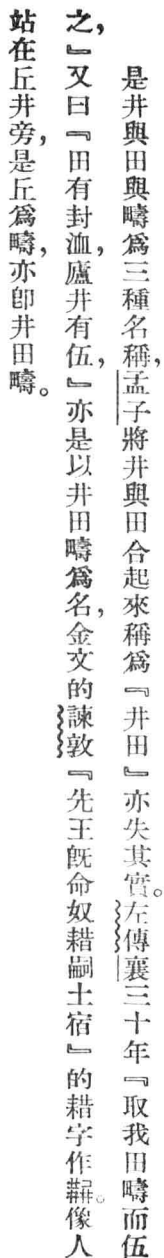 是井與田與疇爲三種名稱，孟子將井與田合起來稱爲『井田』亦失其實。左傳襄三十年『取我田疇而伍
之，』又曰『田有封洫，廬井有伍，』亦是以井田疇爲名，金文的諫敦『先王旣命奴耤嗣土宿』的耤字作。像人
站在丘井旁，是丘爲疇，亦卽井田疇。